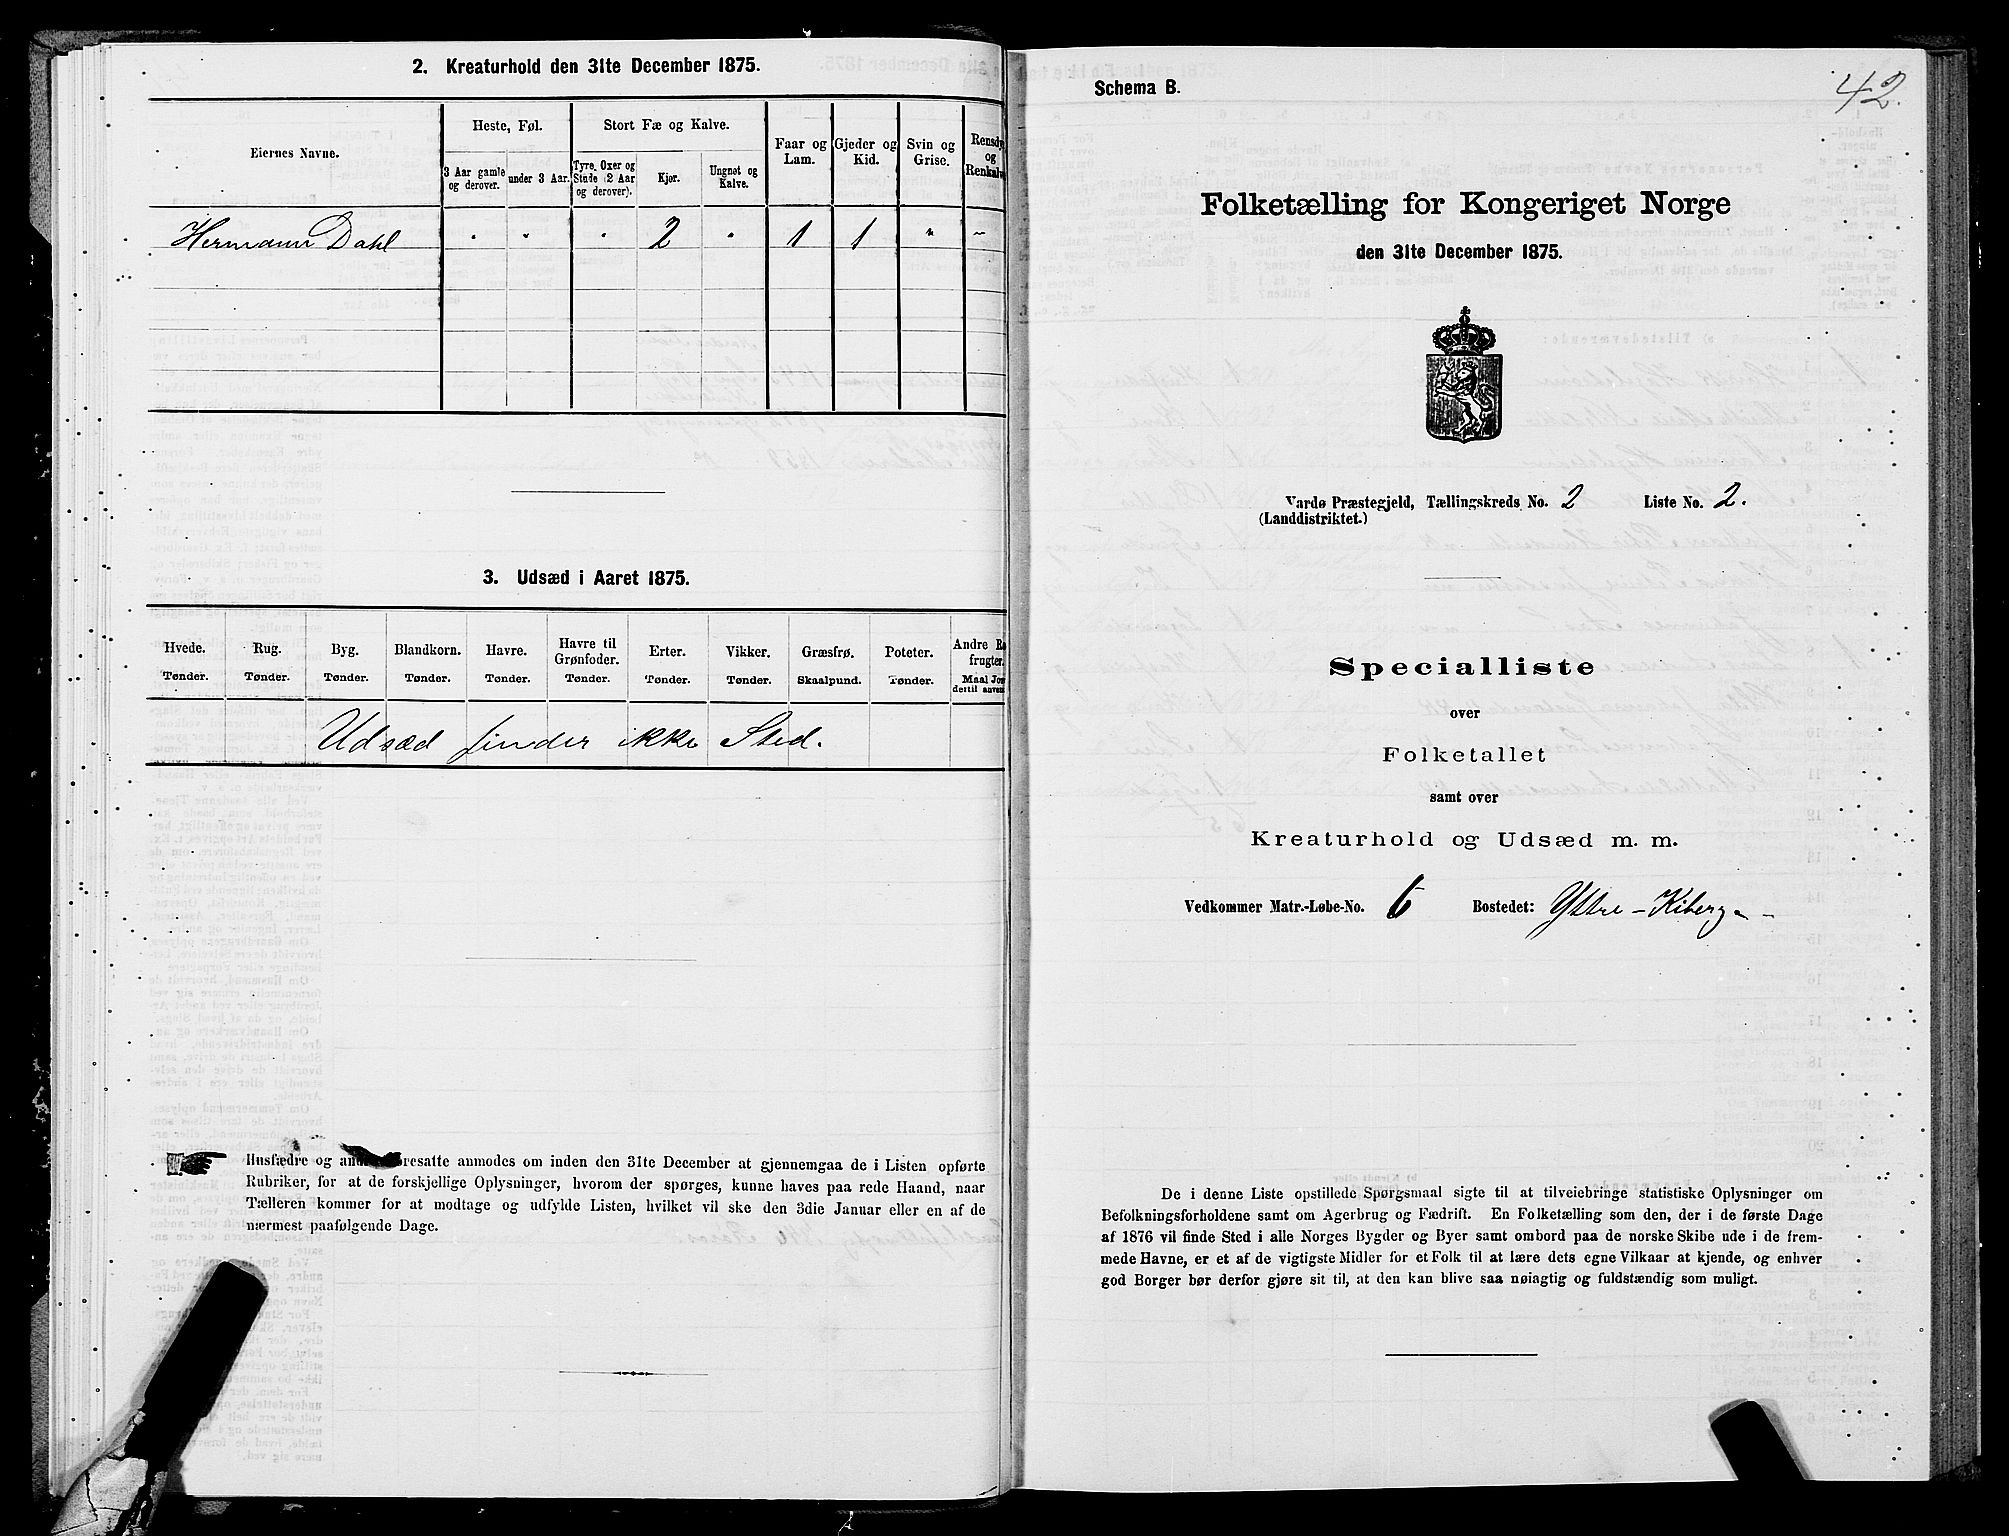 2. Kreaturhold den 31te December 1875.
Eiernes Navne.
Heste, Føl.
Stort Fæ og Kalve.
Faar og Lam.
Gjeder og Kid.
Svin og Grise.
Rensdy
og
Renkalv
3 Aar gamle og derover.
under 3 Aar.
Tyre, Oxer og Stude (2 Aar og derover).
Kjør.
Ungnøt og Kalve.
Hermann Dahl " " " 2 " 1 1 " "
3. Udsæd i Aaret 1875.
Hvede. Tønder.
Rug. Tønder.
Byg. Tønder.
Blandkorn. Tønder.
Havre. Tønder.
Havre til Grønfoder. Tønder.
Erter. Tønder.
Vikker. Tønder.
Græsfrø. Skaalpund.
Poteter. Tønder.
Andre Ro
frugter.
Maal Jor
dertil anven
Udsæd finder ikke Sted.
Husfædre og and oresatte anmodes om inden den 31te December at gjennemgaa de i Listen opførte
Rubriker, for at de forskjellige Oplysninger, hvorom der spørges, kunne haves paa rede Haand, naar
Tælleren kommer for at modtage og udfylde Listen, hvilket vil ske den 3die Januar eller en af de
nærmest paafølgende Dage.
Schema B.
42.
Folketælling for Kongeriget Norge
den 31te December 1875.
Vardø Præstegjeld, Tællingskreds No. 2 Liste No. 2.
(Landdistriktet.)
Specialliste
over
Folketallet
samt over
Kreaturhold og Udsæd m. m.
Vedkommer Matr.-Løbe-No. 6 Bostedet: Yttre-Kiberg
De i denne Liste opstillede Spørgsmaal sigte til at tilveiebringe statistiske Oplysninger om
Befolkningsforholdene samt om Agerbrug og Fædrift. En Folketælling som den, der i de første Dage
af 1876 vil finde Sted i alle Norges Bygder og Byer samt ombord paa de norske Skibe ude i de frem-
mede Havne, er et af de vigtigste Midler for et Folk til at lære dets egne Vilkaar at kjende, og enhver
god Borger bør derfor gjøre sit til, at den kan blive saa nøiagtig og fuldstændig som muligt.